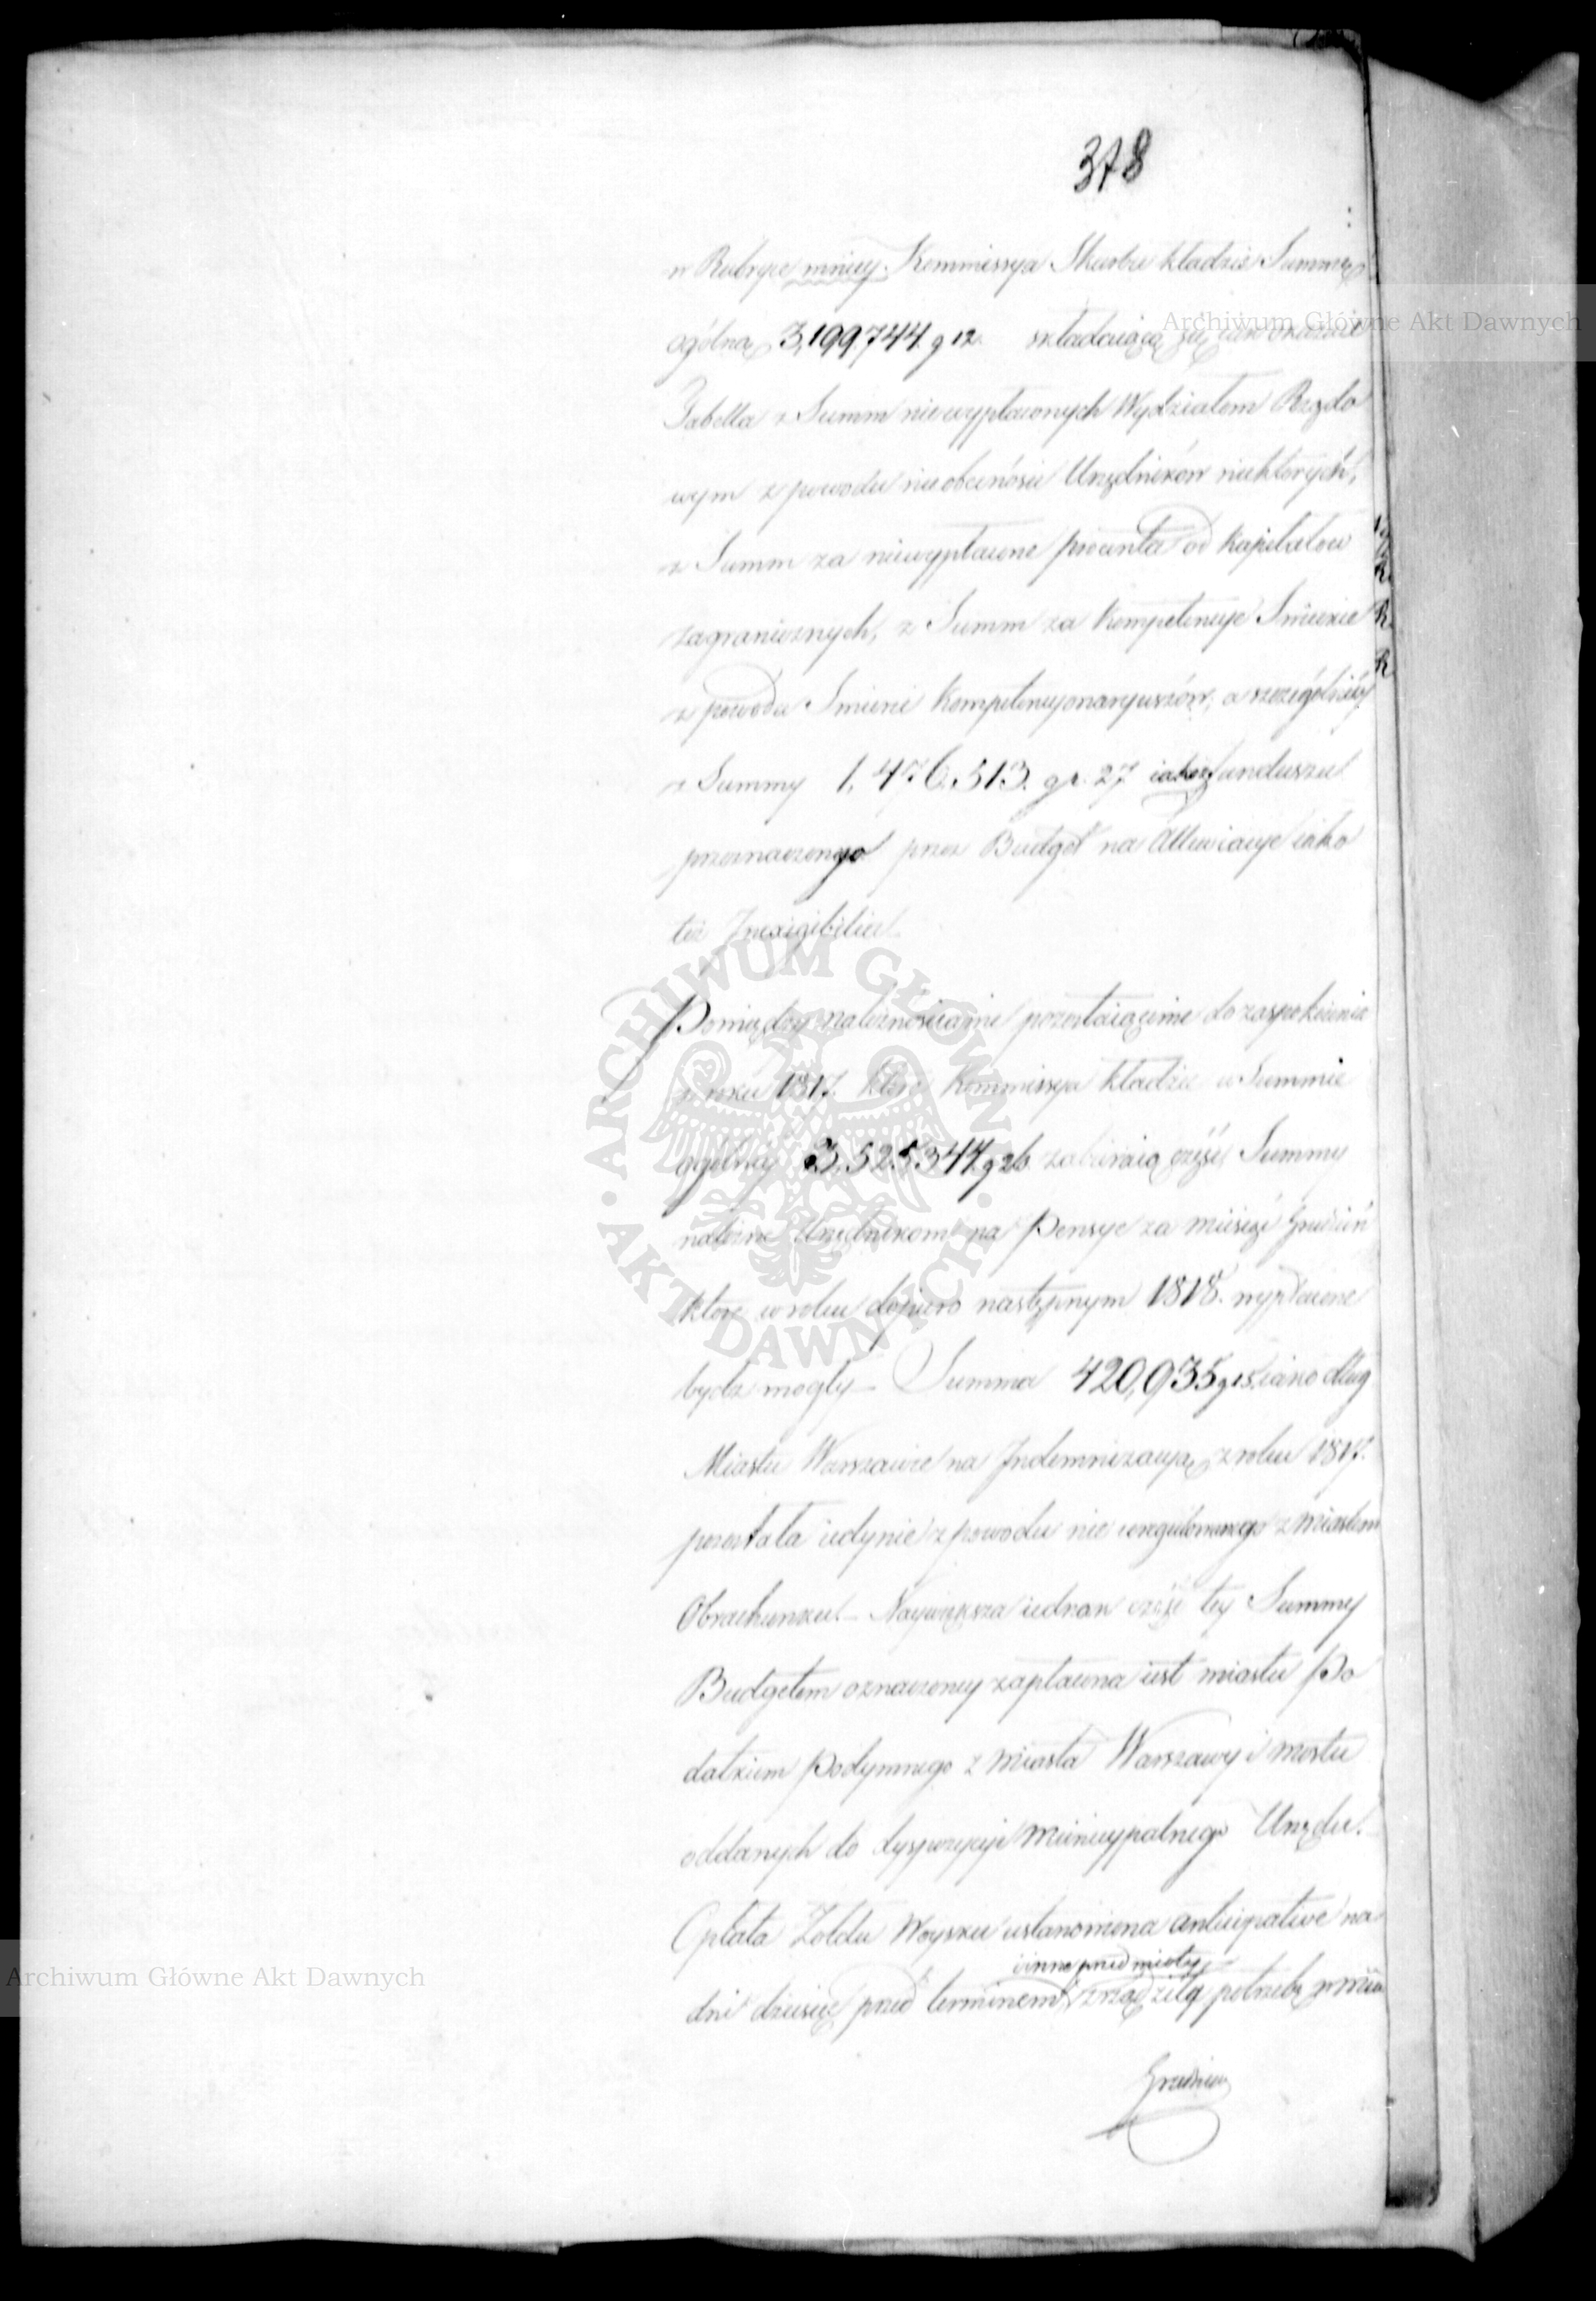 378
w Rubryce mniey Kommissya Skarbu kładzie Summę
ogólną 3,199,744. g 12. składaiącą się iak okazuie
Tabella z Summ niewypłaconych Wydziałom Rządo
wym z powodu nieobecności Urzędników niektórych,
z Summ za niewypłacone procenta od Kapitałów
zagranicznych, z Summ za Kompetencye Smierci
z powodu Smierci Kompetencyonaryuszów, a szczególniey
z Summy 1,476,513. gr. 27 iako funduszu
przeznaczonego przez Budget na Allewiacye iako
też Inexigibilia.
Pomiędzy należnościami pozostaiącemi do zaspokoienia
z roku 1817. które Kommissya kładzie w Summie
ogólney 3,525,344 g 26. zabieraią część Summy
należne Urzędnikom na Pensye za miesiąc Grudzień
które w roku dopiero następnym 1818. wypłacone
bydz mogły – Summa 420,935 g 15. iako dług
Miastu Warszawie na Indemnizacyą z roku 1817.
pozostała iedynie z powodu nie uregulowanego z Miastem
Obrachunku. – Naywiększa iednak część tey Summy
Budgetem oznaczoney zapłacona iest miastu Po
datkiem Podymnego z Miasta Warszawy i mostu
oddanych do dyspozycyi Municypalnego Urzędu.
Opłata Żołdu Woysku ustanowiona anticipative na
i inne przedmioty
dni dziesięć przed terminem zrządziła potrzebę w Mcu
Grudniu
Archiwum Główne Akt Dawnych
ARCHIWUM GŁÓWNE AKT DAWNYCH
Archiwum Główne Akt Dawnych